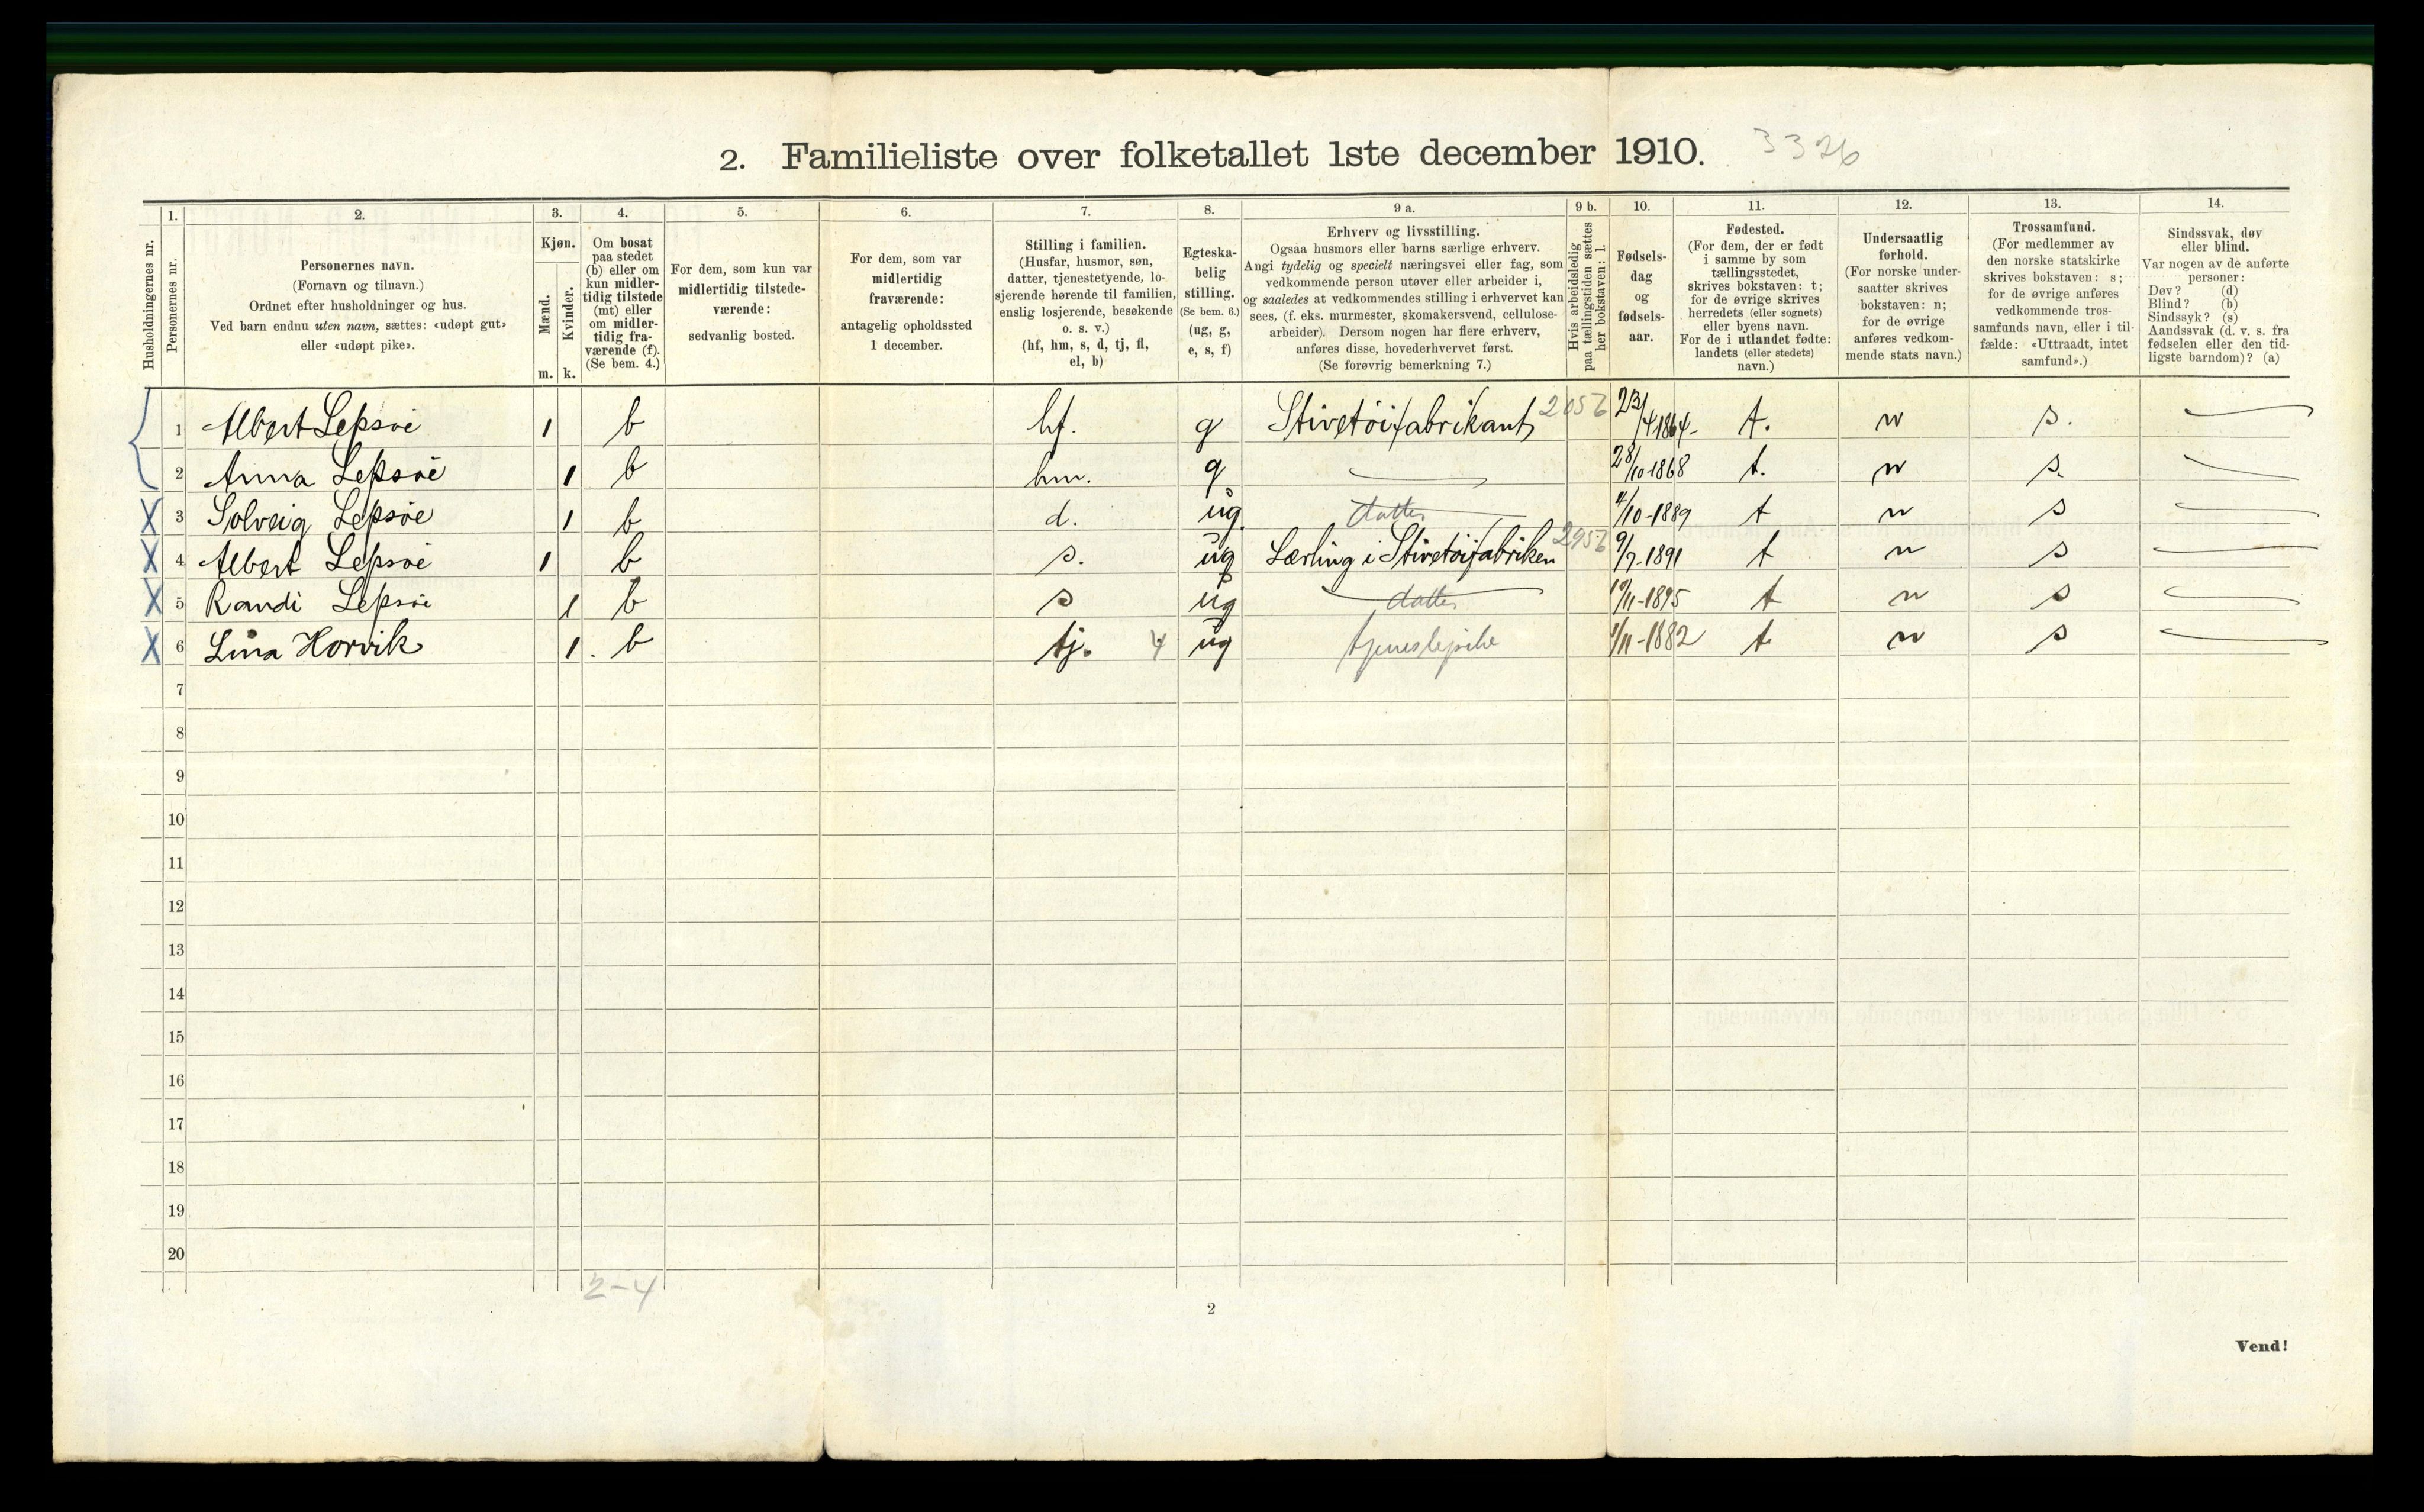 2. Familieliste over folketallet 1ste december 1910. 3326
Husholdningernes nr.
1.
Personernes nr.
2.
Personernes navn.
(Fornavn og tilnavn.)
Ordnet efter husholdninger og hus.
Ved barn endnu uten navn, sættes: «udøpt gut»
eller «udøpt pike».
3.
Kjøn.
Mænd.
Kvinder.
m. k.
4.
Om bosat
paa stedet
(b) eller om
kun midler-
tidig tilstede
(mt) eller
om midler-
tidig fra-
værende (f).
(Se bem. 4.)
5.
For dem, som kun var
midlertidig tilstede-
værende:
sedvanlig bosted.
6.
For dem, som var
midlertidig
fraværende:
antagelig opholdssted
1 december.
7.
Stilling i familien.
(Husfar, husmor, søn,
datter, tjenestetyende, lo-
sjerende hørende til familien,
enslig losjerende, besøkende
o. s. v.)
(hf, hm, s, d, tj, fl,
el, b)
8.
Egteska-
belig
stilling.
(Se bem. 6.)
(ug, g,
e, s, f)
9 a.
Erhverv og livsstilling.
Ogsaa husmors eller barns særlige erhverv.
Angi tydelig og specielt næringsvei eller fag, som
vedkommende person utøver eller arbeider i,
og saaledes at vedkommendes stilling i erhvervet kan
sees, (f. eks. murmester, skomakersvend, cellulose-
arbeider). Dersom nogen har flere erhverv,
anføres disse, hovederhvervet først.
(Se forøvrig bemerkning 7.)
9 b.
Hvis arbeidsledig
paa tællingstiden sættes
her bokstaven: l.
10.
Fødsels-
dag
og
fødsels-
aar.
11.
Fødested.
(For dem, der er født
i samme by som
tællingsstedet,
skrives bokstaven: t;
for de øvrige skrives
herredets (eller sognets)
eller byens navn.
For de i utlandet fødte:
landets (eller stedets)
navn.)
12.
Undersaatlig
forhold.
(For norske under-
saatter skrives
bokstaven: n;
for de øvrige
anføres vedkom-
mende stats navn.)
13.
Trossamfund.
(For medlemmer av
den norske statskirke
skrives bokstaven: s;
for de øvrige anføres
vedkommende tros-
samfunds navn, eller i til-
fælde: «Uttraadt, intet
samfund».)
14.
Sindssvak, døv
eller blind.
Var nogen av de anførte
personer:
Døv? (d)
Blind? (b)
Sindssyk? (s)
Aandssvak (d. v. s. fra
fødselen eller den tid-
ligste barndom)? (a)
1 Albert Lepsøe 1 b hf. g Stivetöifabrikant 23/4 1864- t. n s. —
2 Anna Lepsöe 1 b hm. g — 28/10 1868 t. n s. —
X 3 Solveig Lepsöe 1 b d. ug. datter 4/10-1889 t n s —
X 4 Albert Lepsöe 1 b s. ug Lærling i Stivetöifabriken 9/7-1891 t n s —
X 5 Randi Lepsöe 1 b s ug datter 19/11-1895 t n s —
X 6 Lina Horvik 1. b tj. 4 ug tjenestepike 1/11-1882 t. n s —
7
8
9
10
11
12
13
14
15
16
17
18
19
20
2-4
2
Vend!